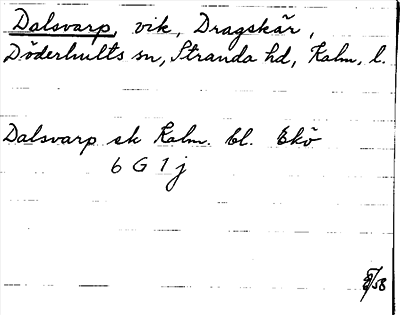 Dalsvarp, vik, Dragskär,
Döderhults sn, Stranda hd, Kalm. l.
Dalsvarp sk Kalm. bl. Ekö
6 G 1 j
/58